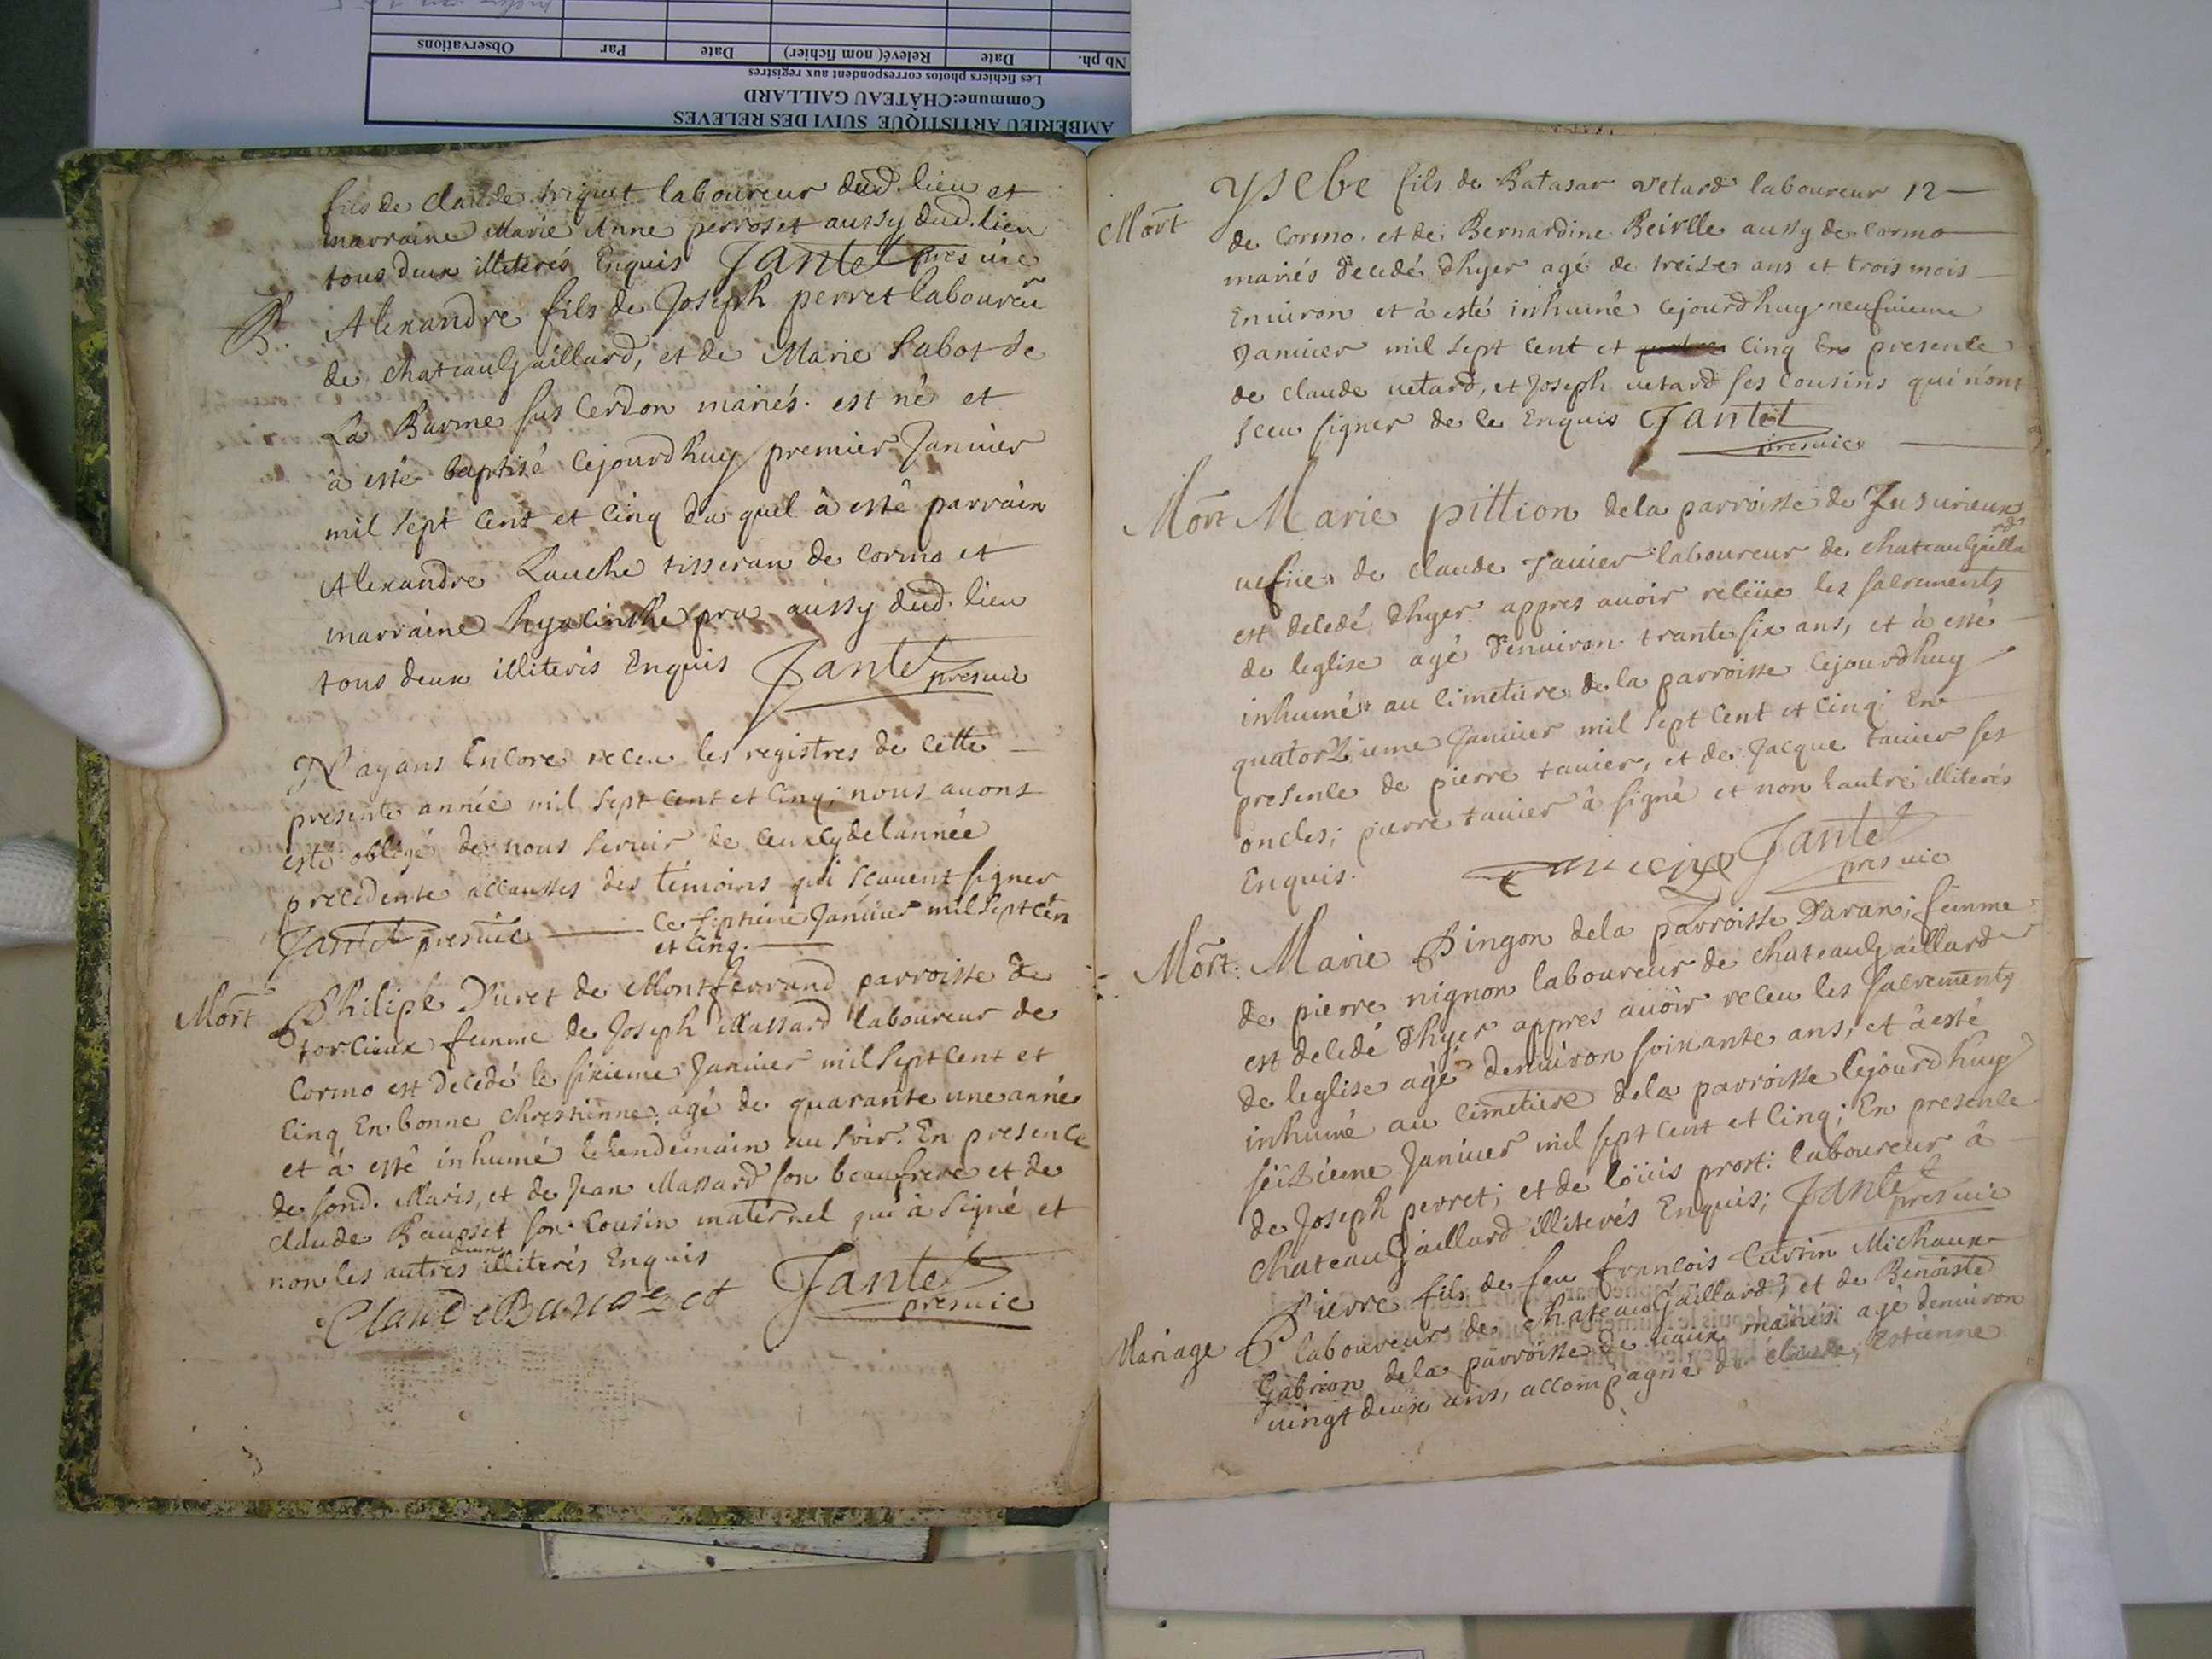 AMBERIEU ARTISTIQUE SUIVI DES RELEVES
Commune: CHÂTEAU GAILLARD
Les fichiers photos correspondent aux registres
Nb ph. Date Relevé( nom fichier) Date Par Observations
fils de claude triquet laboureur dud. lieu et
marraine Marie Anne perroset aussy dud. lieu
tous deux illiterés Enquis Jantet presvic
B. Alexandre fils de Joseph perret laboureu
de chateauGaillard, et de Marie Sabot de
La Barme sus Cerdon mariés. est né et
à esté baptisé cejourdhuy premier Janvier
mil sept cent et cinq du quel à esté parrain
Alexandre Lauche tisseran de cormo et
marraine hyacinthe pra aussy dud. lieu
tous deux illiterés Enquis Jantet presvic
N'ayans Encore receu les registres de cette
presente année mil sept cent et cinq; nous avons
esté obligé de nous servir de ceux cy de lannée
precedente accausses des témoins qui scavent signer
Jantet presvic ce septieme Janvier mil sept cen
et cinq.
Mort Philipe Duret de Montferrand parroisse de
torcieux femme de Joseph Massard laboureur de
Cormo est decedé le sixieme Janvier mil sept cent et
cinq En bonne chrestienne; agé de quarante une année
et à esté inhumé le lendemain au soir. En presence
de sond. Maris, et de Jean Massard son beaufrere et de
claude Bausset son Cousin maternel qui à signé et
non les autres deux illiterés Enquis
Claude Jantet presvic
Ysebe fils de Batasar vetard laboureur 12
Mort de Cormo. et de Bernardine aussy de cormo
mariés decedé dhyer agé de treize ans et trois mois
Environ et à esté inhumé cejourdhuy neufvieme
Janvier mil sept cent et cinq En presence
de claude vetard, et Joseph vetard ses cousins qui n'ont
sceu signer de ce Enquis Jantet
presvic
Mort Marie pittion dela parroisse de Jusurieux
vefve de claude Tavier laboureur de chateauGaillard
est decedé dhyer appres avoir receüe les sacrements
de leglise agé denviron trante six ans, et à esté
inhumé au cimetiere de la parroisse cejourdhuy
quatorzieme Janvier mil sept cent et cinq; En
presence de pierre tavier, et de Jacque tavier ses
oncles; pierre tavier à signé et non lautre illiterés
Enquis. Jantet
presvic
Mort: Marie Pingon dela parroisse Daran; femme
de pierre nignon laboureur de chateauGaillard
est decedé dhyer appres avoir receu les sacrements
de leglise agé denviron soixante ans, et à esté
inhumé au cimetiere dela parroisse cejourdhuy
seizieme Janvier mil sept cent et cinq; En presence
de Joseph perret; et de loüis prost: laboureur à
chateauGaillard illiterés Enquis; Jantet presvic
Mariage Pierre fils de feu francois Cuvrin Michaux
laboureur de chateauGaillard, et de Benoiste
Gabrion dela parroisse de vaux mariés agé denviron
vingt deux ans, accompagné de claude, Estienne